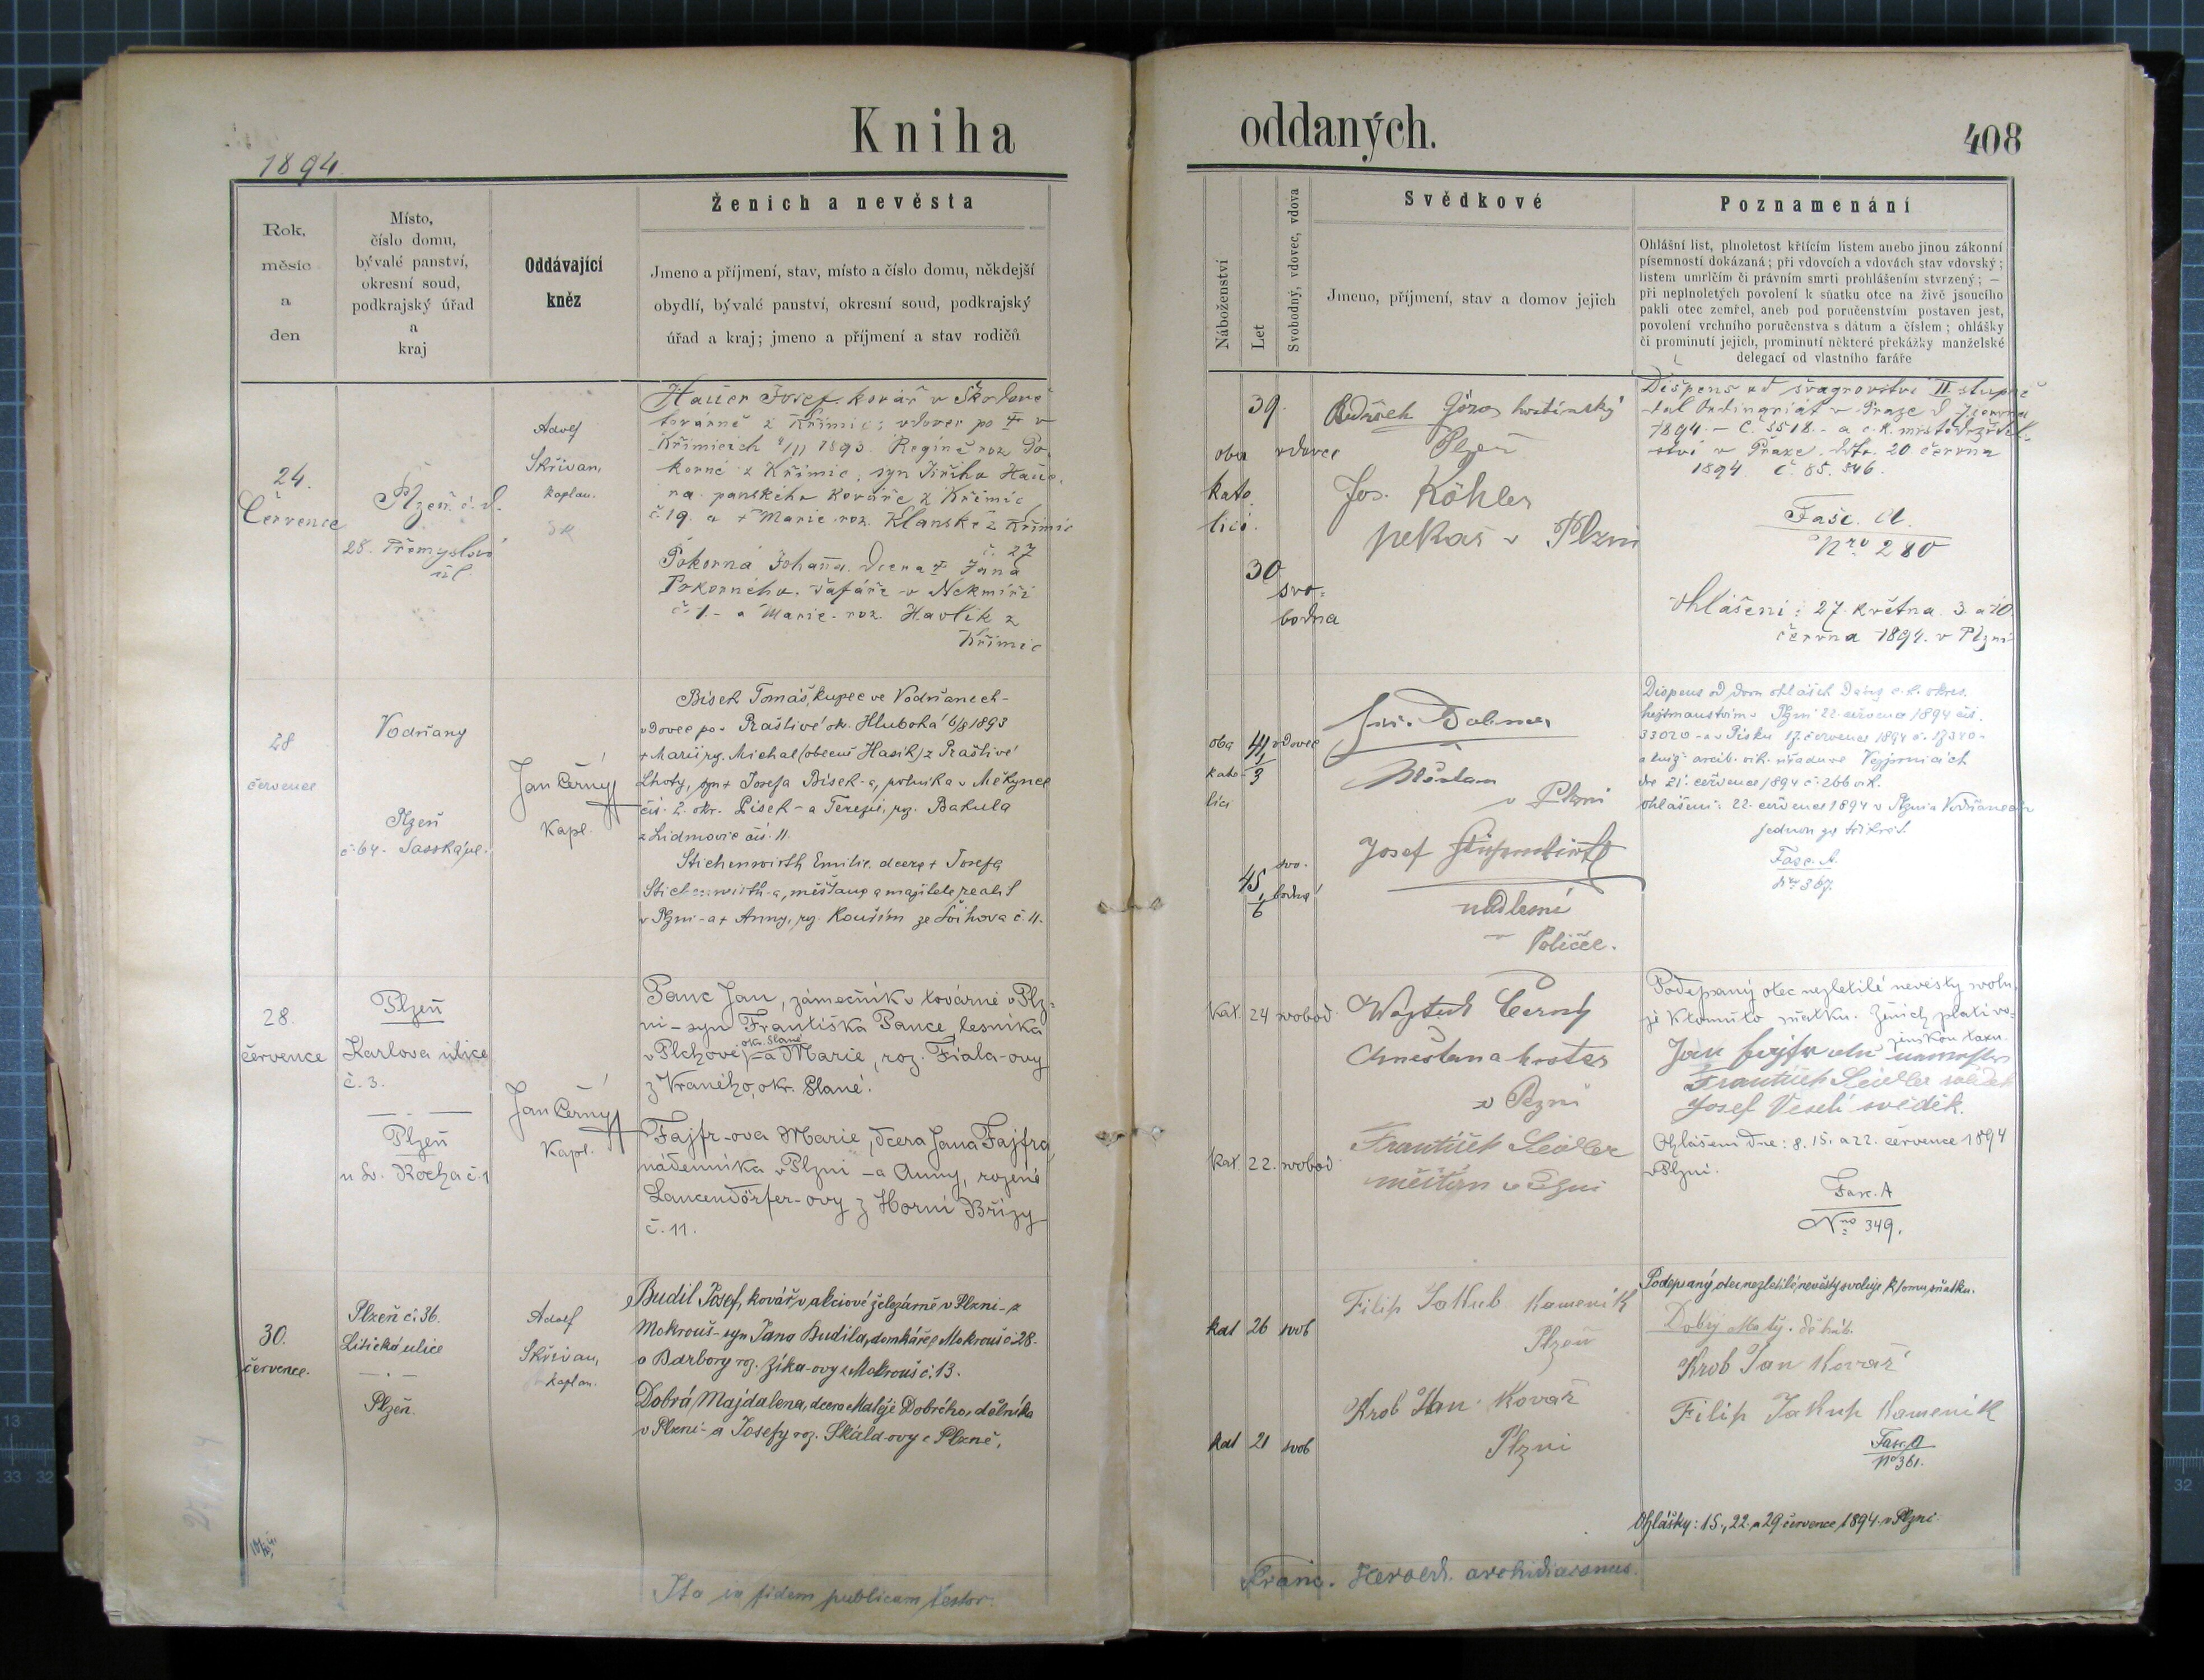 Kniha
oddaných.
408
1894.
Rok,
měsíc
a
den
Místo,
číslo domu,
bývalé panství,
okresní soud,
podkrajský úřad
a
kraj
Oddávající
kněz
Ženich a nevěsta
Jmeno a příjmení, stav, místo a číslo domu, někdejší
obydlí, bývalé panství, okresní soud, podkrajský
úřad a kraj; jmeno a příjmení a stav rodičů
Náboženství
Let
Svobodný, vdovec, vdova
Svědkové
Jmeno, příjmení, stav a domov jejich
Poznamenání
Ohlášní list, plnoletost křticím listem anebo jinou zákonní
písemností dokázaná; při vdovcích a vdovách stav vdovský;
listem umrlčím či právním smrti prohlášením stvrzený; —
při neplnoletých povolení k sňatku otce na živě jsoucího
pakli otec zemřel, aneb pod poručenstvím postaven jest,
povolení vrchního poručenstva s dátum a číslem; ohlášky
či prominutí jejich, prominutí některé překážky manželské
delegací od vlastního faráře
24.
Července
Plzeň. č. d.
28. Přemyslova
ul.
Adolf
Skřivan,
kaplan.
Hauer Josef, kovář v Škodově
továrně z Křimic; vdovec po † v
Křimicích 1893. Regině roz. Po-
korné z Křimic, syn Jiřího Haue-
ra panského kováře z Křimic
č. 19. a † Marie roz. Klanské z Křimic
č. 27
Pokorná Johana. dcera † Jana
Pokorného. šafáře v Nekmíři
č. 1. - a Marie roz. Havlík z
Křimic
oba
kato
lici.
39.
vdovec
30
svo-
bodna
Plzeň
Jos. Köhler
pekař v Plzni
Dispens od švagrovství II stupně
1894. - č. 5518. - a c. k. místodržitel-
ství v Praze. dto. 20 června
1894 č. 85.546.
Fasc. A.
Nro 280
Ohlášení: 27. května. 3. a 10.
června 1894. v Plzni
28
července
Vodňany
Plzeň
č. 64. Sasská ul.
Jan Černý
Kapl.
Bísek Tomáš, kupec ve Vodňanech -
vdovec po v Praštivé ok. Hluboká 1893
† Marii rz. Michal (obecně Hasík) z Praštivé
Lhoty, syn † Josefa Bísek-a, rolníka v Mětynce
čís. 2. okr. Písek - a Terezie, rz. Bakula
z Lidmovic čís. 11.
Stichenwirth Emilie, dcera † Josefa
Stichenwirth-a, měšťana a majitele realit
v Plzni - a † Anny, rz. Kouřím ze č. 11.
oba
kato-
líci
41
3
vdovec
45
6
svo-
bodná
Měšťan
v Plzni
Josef
nadlesní
v Poličce.
Dispens od dvou ohlášek daný c. k. okres.
hejtmanstvím v Plzni 22. července 1894 čís.
33020 - a v Písku 17. července 1894 č.
dne 21. července 1894 č. 266
Ohlášeni: 22. července 1894 v Plzni a Vodňanech
jednou za třikrát.
Fasc. A.
Nro 367.
28.
července
Plzeň
Karlova ulice
č. 3.
Plzeň
u Sv. Rocha č. 1
Jan Černý
Kapl.
Panc Jan, zámečník v továrně v Plz-
ni - syn Františka Pance, lesníka
v Plchově, okr. Slané - a Marie, roz. Fiala-ovy
z Vraného, okr. Slané.
Fajfr-ova Marie, dcera Jana Fajfra,
nádenníka v Plzni - a Anny, rozené
Lancendörfer-ovy z Horní Břízy
č. 11.
Kat. 24 svobod.
Kat. 22. svobod
Černý
v Plzni
František Seidler
měšťan v Plzni
Podepsaný otec nezletilé nevěsty svolu-
je k tomuto sňatku. Ženich platí vo-
jenskou taxu.
František Seidler svědek
Josef Veselí svědek.
Ohlášeni dne: 8. 15. a 22. července 1894
v Plzni.
Fasc. A
Nro 349.
30.
července.
Plzeň č. 36.
Litická ulice
Plzeň.
Adolf
Skřivan,
kaplan.
Budil Josef, kovář v akciové železárně v Plzni - z
Mokrouš - syn Jana Budila, domkáře z Mokrouš č. 28.
a Barbory roz. Zíka-ovy z Mokrouš č. 13.
Dobrá Majdalena, dcera Matěje Dobrého, dělníka
v Plzni - a Josefy roz. Skála-ovy z Plzně.
kat 26 svob
kat 21 svob
Filip Jakub Kameník
Plzeň
Krob Jan Kovář
Plzni
Podepsaný otec nezletilé nevěsty svoluje k tomu sňatku.
Dobrý Matěj.
Krob Jan Kovář
Filip Jakup Kameník
Fasc. A
No 361.
Ohlášky: 15., 22. a 29. července 1894. v Plzni.
Ita in fidem publicam testor.
Franc. Herold. archidiaconus.